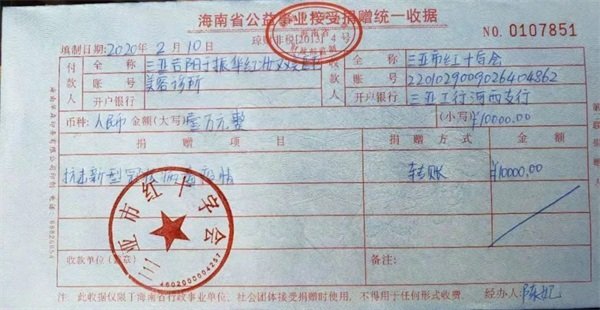 海南省公益事业接受捐赠统一收据
琼财非税[2013] 4号
NO. 0107851
填制日期: 2020 年 2 月 10 日
付款人 全称
美容诊所
账号
开户银行
收款人 全称 三亚市红十字会
账号 2201029009026404862
开户银行 三亚工行河西支行
币种: 人民币 金额(大写) 壹万元整 (小写) ¥10000.00
捐赠项目 捐赠方式 金额
抗击新型冠状病毒疫情 转账 ¥10000.00
三亚市红十字会
4602000004257
收款单位(盖章) 备注:
注: 此收据仅限于海南省行政事业单位、社会团体接受捐赠时使用。不得用于任何形式收费。 经办人: